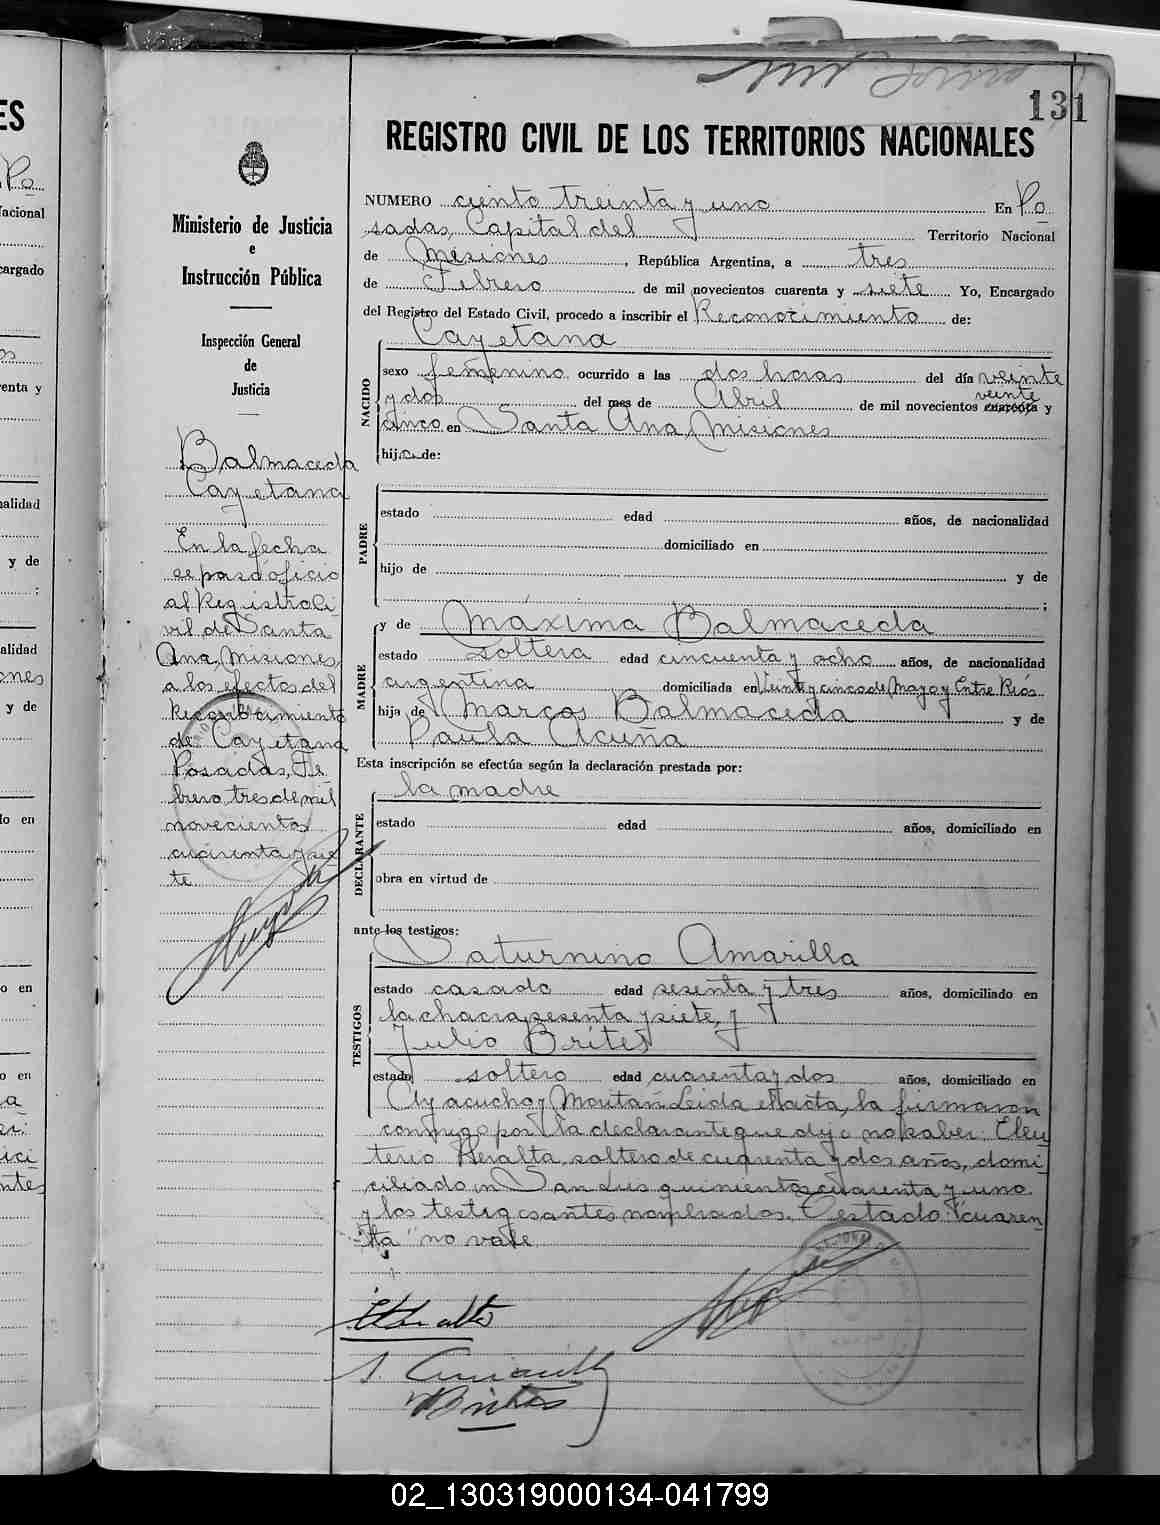 131
REGISTRO CIVIL DE LOS TERRITORIOS NACIONALES
Ministerio de Justicia
e
Instrucción Pública
Inspección General
de
Justicia
Balmaceda
Cayetana
En la fecha
se pasó oficio
al Registro Ci-
vil de Santa
Ana, Misiones,
a los efectos del
Reconocimiento
de Cayetana
Posadas, Fe-
brero, tres de mil
novecientos
cuarenta y sie-
te.
NUMERO ciento treinta y uno En Po
sadas, Capital del Territorio Nacional
de Misiones, República Argentina, a tres
de Febrero de mil novecientos cuarenta y siete Yo, Encargado
del Registro del Estado Civil, procedo a inscribir el Reconocimiento de:
NACIDO
Cayetana
sexo femenino ocurrido a las dos horas del día veinte
veinte
y dos del mes de Abril de mil novecientos cuarenta y
cinco en Santa Ana, Misiones
hija de:
PADRE
estado edad años, de nacionalidad
domiciliado en
hijo de y de
;
MADRE
y de Máxima Balmaceda
estado soltera edad cincuenta y ocho años, de nacionalidad
argentina domiciliada en Veinte y cinco de Mayo y Entre Ríos
hija de Marcos Balmaceda y de
Paula Acuña
Esta inscripción se efectúa según la declaración prestada por:
DECLARANTE
la madre
estado edad años, domiciliado en
obra en virtud de
ante los testigos:
TESTIGOS
Saturnino Amarilla
estado casado edad sesenta y tres años, domiciliado en
la chacra sesenta y siete, y
Julio Brites
estado soltero edad cuarenta y dos años, domiciliado en
Ayacucho y Leida el acta, la firmaron
conmigo por la declarante que dijo no saber: Eleu
terio Peralta, soltero de cuarenta y dos años, domi
ciliado en San Luis quinientos cuarenta y uno
y los testigos antes nombrados. Testado: "cuaren-
ta" no vale.
S. Amarilla
Brites
ES
Po
Nacional
cargado
enta y
nalidad
y de
;
alidad
ones
y de
do en
o en
o en
02_130319000134-041799